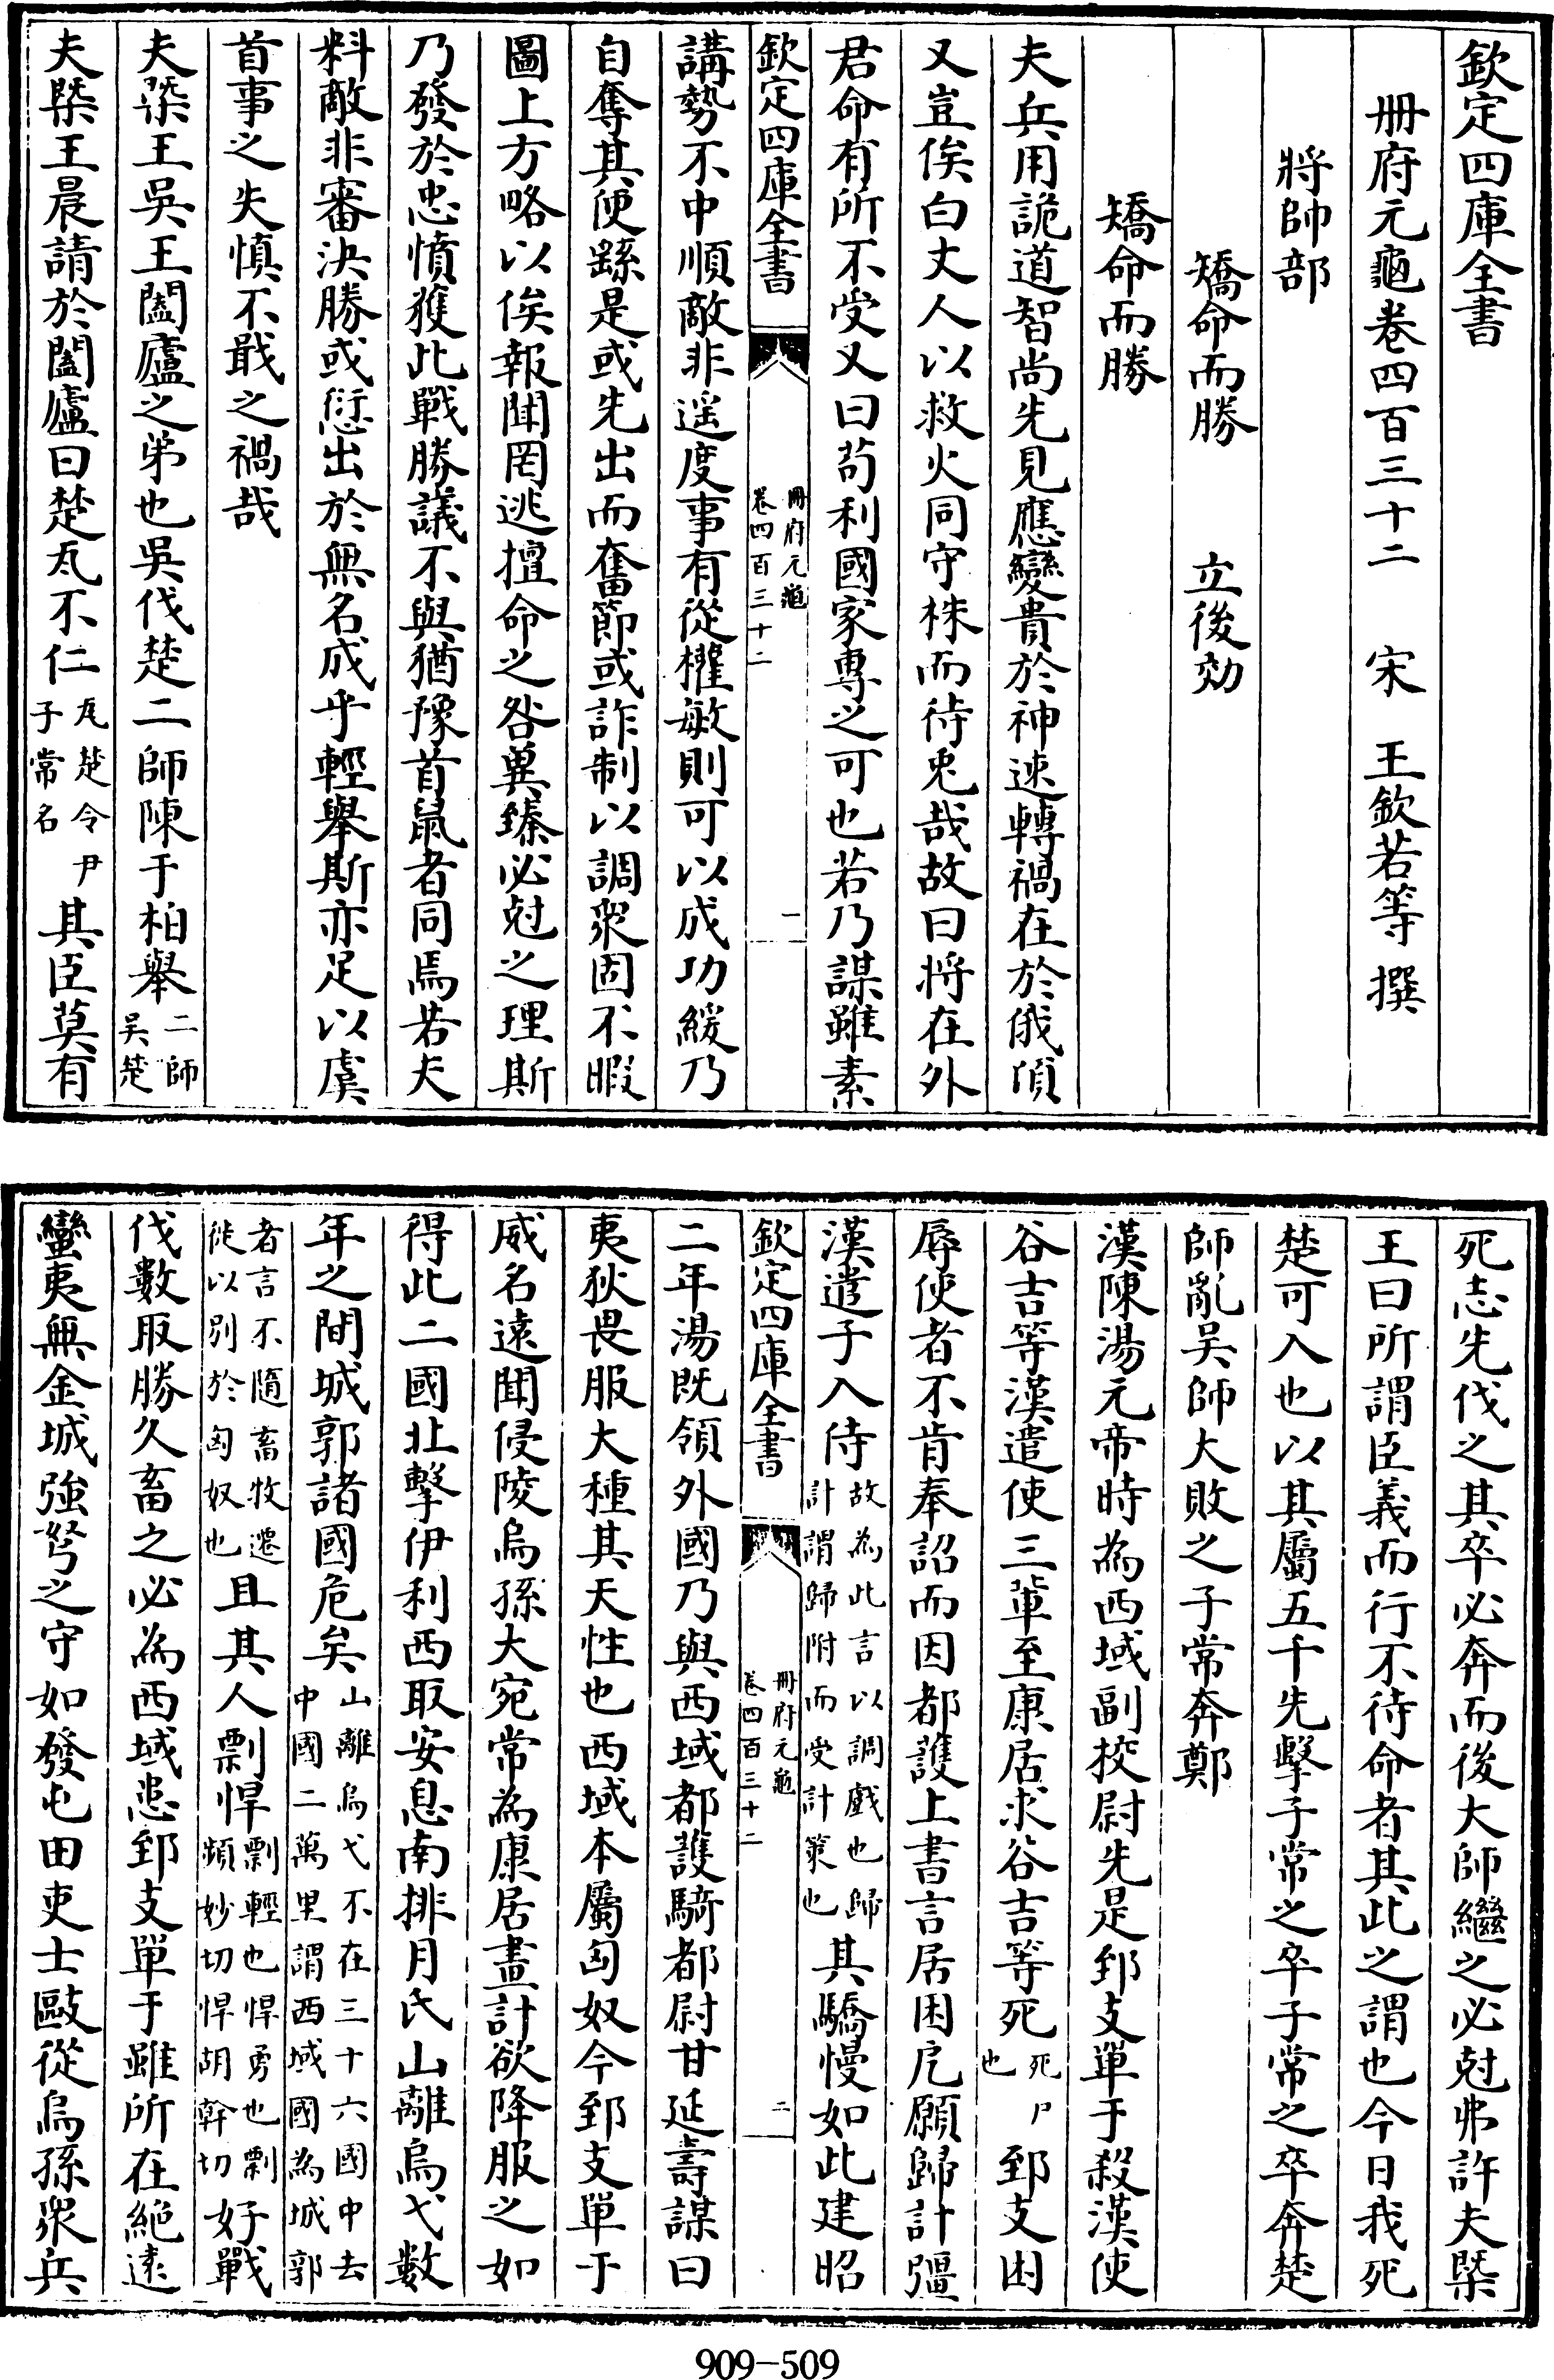 欽定四庫全書
冊府元龜卷四百三十二　宋　王欽若等　撰
將帥部
矯命而勝　立後効
矯命而勝
夫兵用詭道智尚先見應變貴於神速轉禍在於俄頃
又豈俟白丈人以救火同守株而待兎哉故曰將在外
君命有所不受又曰茍利國家專之可也若乃謀雖素
欽定四庫全書　冊府元龜　卷四百三十二　一
講勢不中順敵非遥度事有從權敏則可以成功緩乃
自奪其便繇是或先出而奮節或詐制以調衆固不暇
圖上方略以俟報聞罔逃擅命之咎冀臻必尅之理斯
乃發於忠憤獲此戰勝議不與猶豫首鼠者同焉若夫
料敵非審決勝或愆出於無名成乎輕舉斯亦足以虞
首事之失慎不戢之禍哉
夫㮣王吳王闔廬之弟也吳伐楚二師陳于柏舉二師吳楚
夫㮣王晨請於闔廬曰楚瓦不仁瓦楚令尹子常名其臣莫有
死志先伐之其卒必奔而後大師繼之必尅弗許夫㮣
王曰所謂臣義而行不待命者其此之謂也今日我死
楚可入也以其屬五千先擊子常之卒子常之卒奔楚
師亂吳師大敗之子常奔鄭
漢陳湯元帝時為西域副校尉先是郅支單于殺漢使
谷吉等漢遣使三軰至康居求谷吉等死死尸也郅支困
辱使者不肯奉詔而因都護上書言居困戹願歸計彊
漢遣子入侍故為此言以調戲也歸計謂歸附而受計策也其驕慢如此建昭
欽定四庫全書　冊府元龜　卷四百三十二　二
二年湯既領外國乃與西域都護騎都尉甘延壽謀曰
夷狄畏服大種其天性也西域本屬匈奴今郅支單于
威名遠聞侵陵烏孫大宛常為康居畫計欲降服之如
得此二國北擊伊利西取安息南排月氏山離烏弋數
年之間城郭諸國危矣山離烏弋不在三十六國中去中國二萬里謂西域國為城郭
者言不隨畜牧遷徙以别於匈奴也且其人剽悍剽輕也悍勇也剽頻妙切悍胡幹切好戰
伐數取勝久畜之必為西域患郅支單于雖所在絶遠
蠻夷無金城強弩之守如發屯田吏士敺從烏孫衆兵
909-509